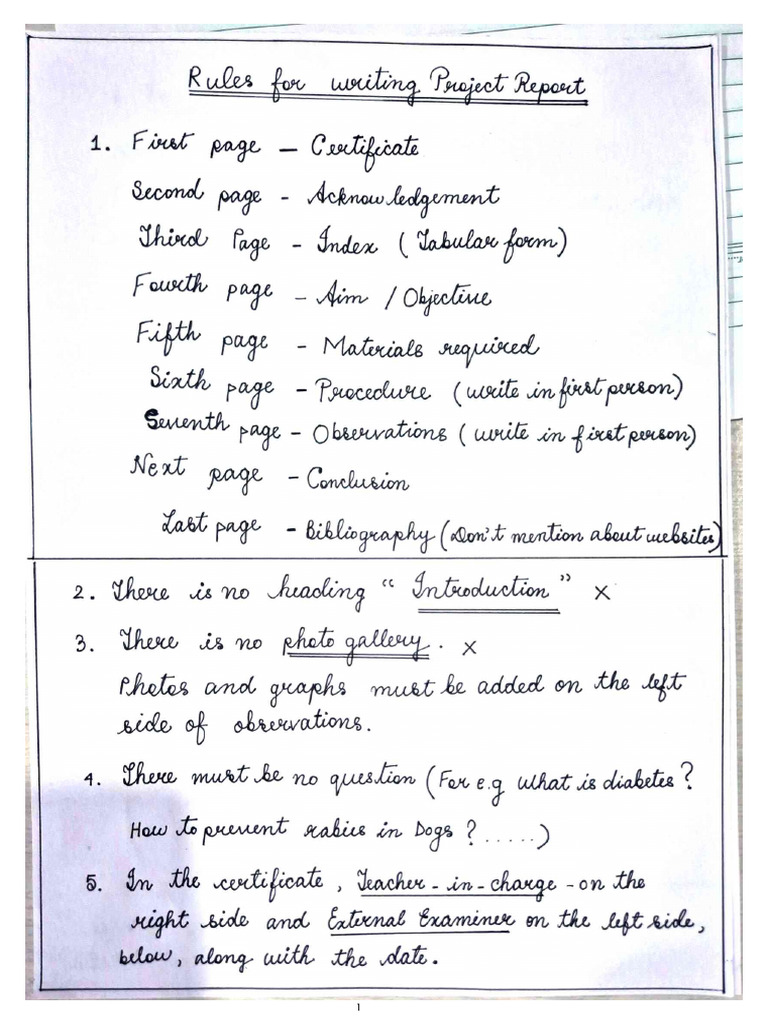 Rules for writing Project Report
1. First page - Certificate
Second page - Acknowledgement
Third Page - Index (Tabular form)
Fourth page - Aim / Objective
Fifth page - Materials required
Sixth page - Procedure (write in first person)
Seventh page - Observations (write in first person)
Next page - Conclusion
Last page - Bibliography (Don't mention about websites)
2. There is no heading "Introduction" x
3. There is no photo gallery. x
Photos and graphs must be added on the left
side of observations.
4. There must be no question (For e.g What is diabetes?
How to prevent rabies in Dogs ? .....)
5. In the certificate, Teacher-in-charge - on the
right side and External Examiner on the left side,
below, along with the date.
1